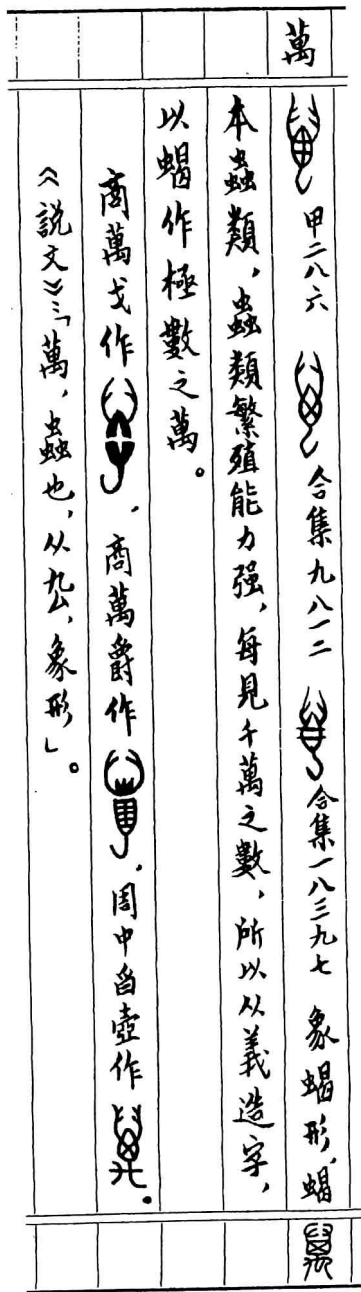 萬
甲二八六 合集九八一二 合集一八三九七 象蝎形，蝎
本蟲類，蟲類繁殖能力强，每見千萬之數，所以从義造字，
以蝎作極數之萬。
商萬戈作，商萬爵作，周中𠂤壺作。
《説文》：「萬，蟲也，从厹，象形」。